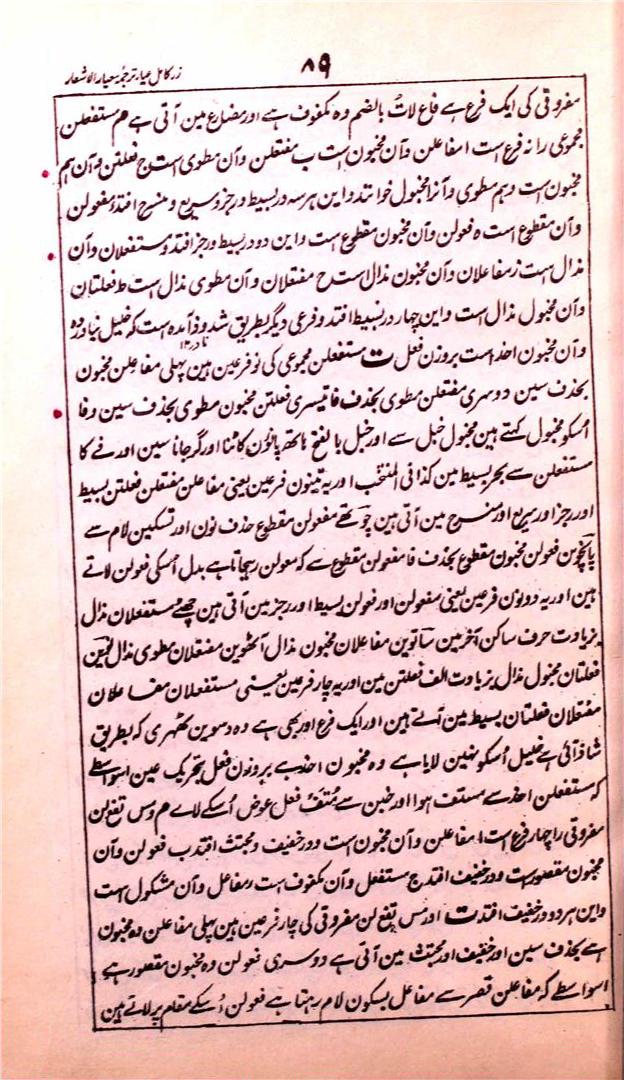 ۸۹
زر کامل عیار ترجمہ معیار الاشعار
مفروقی کی ایک فرع ہے فاع لاتُ بالضم وہ مکفوف ہے اور مضارع مین آتی ہے هم مستفعلن
مجموعی را نہ فرع است ا مفاعلن وآن مخبون است ب مفتعلن وآن مطوی است ج فعلتن وآن ہم
مخبون است و ہم مطوی وآنرا مخبول خوانند و این ہر سہ در بسیط و رجز و سریع و منسرح افتد د مفعولن
وآن مقطوع است ہ فعولن وآن مخبون مقطوع است و این دو در بسیط و رجز افتد و مستفعلان وآن
مذال است ز مفاعلان وآن مخبون مذال است ح مفتعلان وآن مطوی مذال است ط فعلتان
وآن مخبول مذال است و این چہار در بسیط افتد و فرعی دیگر بطریق شذوذ آمدہ است کہ خلیل نیاوردہ
وآن مخبون احذ است بروزن فعل ت مستفعلن مجموعی کی نو فرعین ہین پہلی مفاعلن مخبون
بحذف سین دوسری مفتعلن مطوی بحذف فا تیسری فعلتن مخبون مطوی بحذف سین و فا
اُسکو مخبول کہتے ہین مخبول خبل سے اور خبل بالفتح ہاتھ پانوُن کاٹنا اور گر جانا سین اور فے کا
مستفعلن سے بحر بسیط مین کذا فی المنتخب اور یہ تینون فرعین یعنی مفاعلن مفتعلن فعلتن بسیط
اور رجز اور سریع اور منسرح مین آتی ہین چوتھے مفعولن مقطوع حذف نون اور تسکین لام سے
پانچوین فعولن مخبون مقطوع بحذف فا مفعولن مقطوع سے کہ معولن رہجاتا ہے بدل اُسکی فعولن لاتے
ہین اور یہ دونون فرعین یعنی مفعولن اور فعولن بسیط اور رجز مین آتی ہین چھٹے مستفعلان مذال
بزیادت حرف ساکن آخر مین ساتوین مفاعلان مخبون مذال آٹھوین مفتعلان مطوی مذال نوین
فعلتان مخبول مذال بزیادت الف فعلتن مین اور یہ چار فرعین یعنی مستفعلان مفاعلان
مفتعلان فعلتان بسیط مین آتے ہین اور ایک فرع اور بھی ہے وہ دسوین ٹھہری کہ بطریق
شاذ آئی ہے خلیل اُسکو نہین لایا ہے وہ مخبون احذ ہے بروزن فعل بتحریک عین اسواسطے
کہ مستفعلن احذ سے مستف ہوا اور خبن سے مُتَفْ فعل عوض اُسکے لاے هم و مس تفع لن
مفروقی را چہار فرع است ا مفاعلن وآن مخبون است و در خفیف و مجتث افتد ب فعولن وآن
مخبون مقصورست و در خفیف افتد ج مستفعل وآن مکفوف است د مفاعل وآن مشکول است
و این ہر دو در خفیف افتد ت اور مس تفع لن مفروقی کی چار فرعین ہین پہلی مفاعلن وہ مخبون
ہے بحذف سین اور خفیف اور مجتث مین آتی ہے دوسری فعولن وہ مخبون مقصور ہے
اسواسطے کہ مفاعلن قصر سے مفاعل بسکون لام رہتا ہے فعولن اُسکے مقام پر لاتے ہین